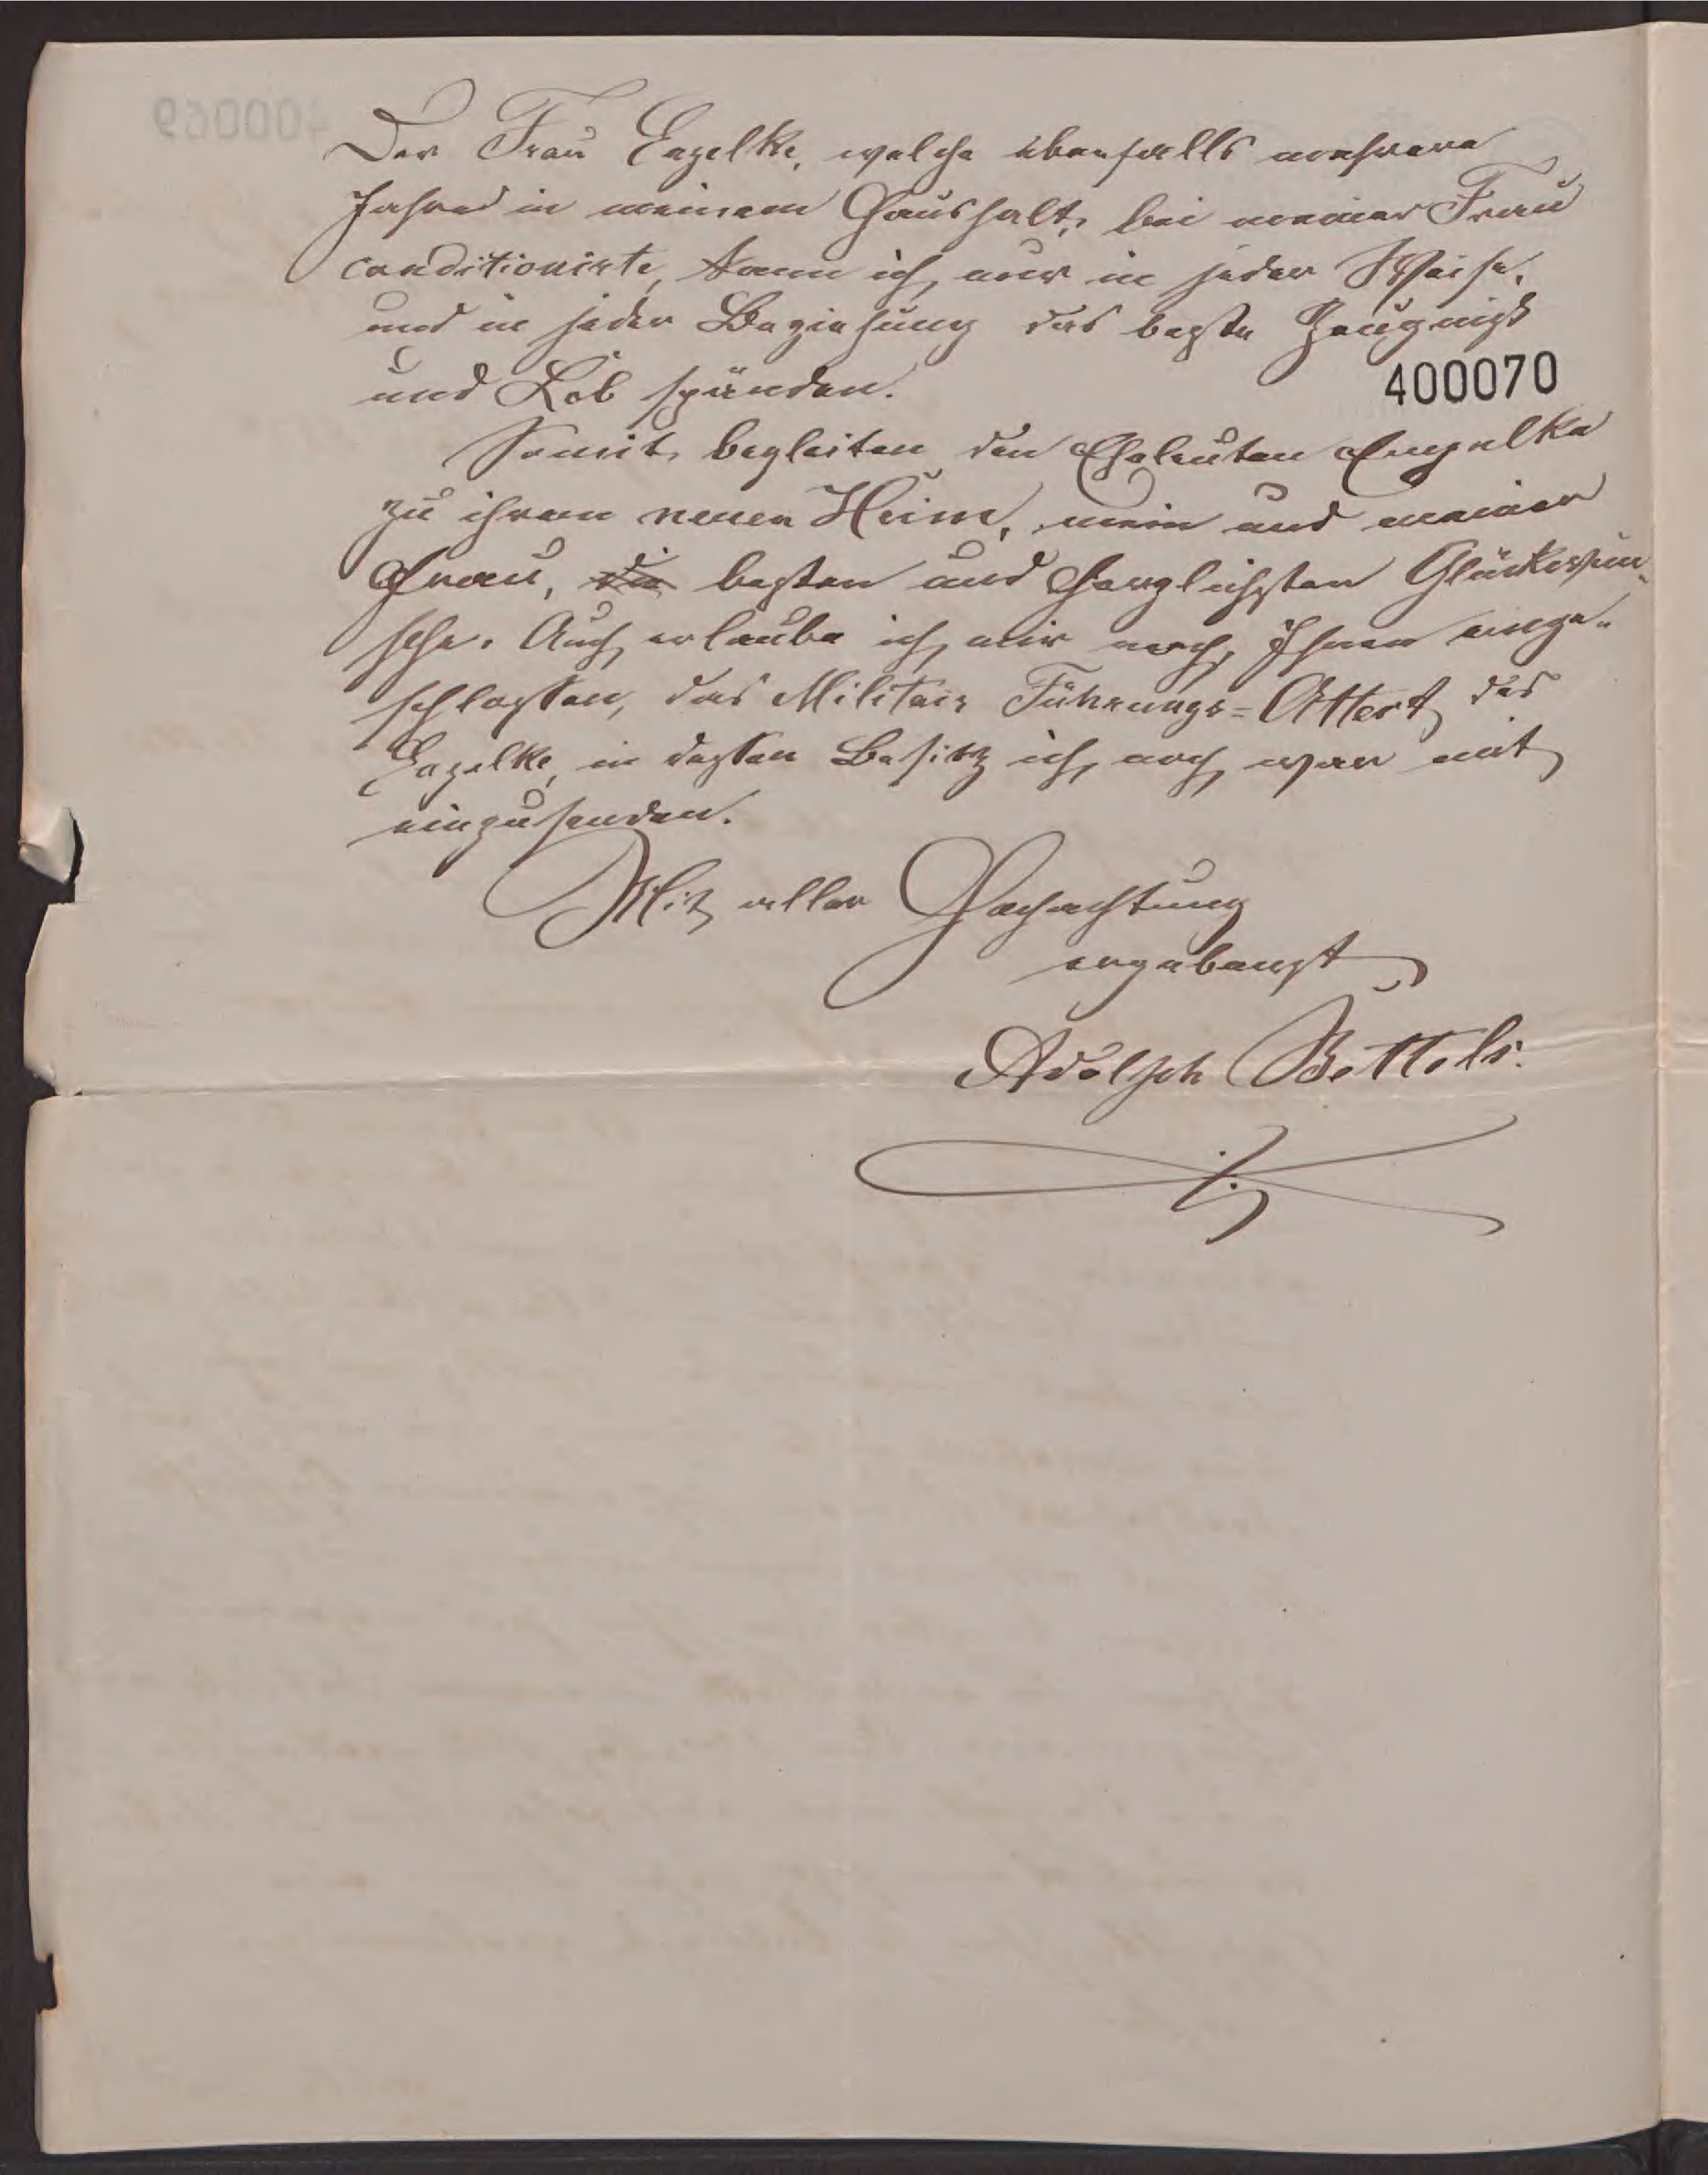 Der Frau Engelke, welche ebenfalls mehrere
Jahre in meinem Haushalt, bei meiner Frau
conditionirte, kann ich, nur in jeder Weise,
und in jeder Beziehung das beste Zeugniß
und Lob spenden.
400070
Somit, begleiten den Eheleuten Engelke
zu ihrem neuen Heim, mein und meiner
Frau, die besten und herzlichsten Glückwün-
sche. Auch erlaube ich, mir noch, Ihnen einge-
schlossen, das Militair Führungs=Attest, des
Engelke, in dessen Besitz ich, noch, war mit
einzusenden.
Mit aller Hochachtung
ergebenst
Adolph Bettels.